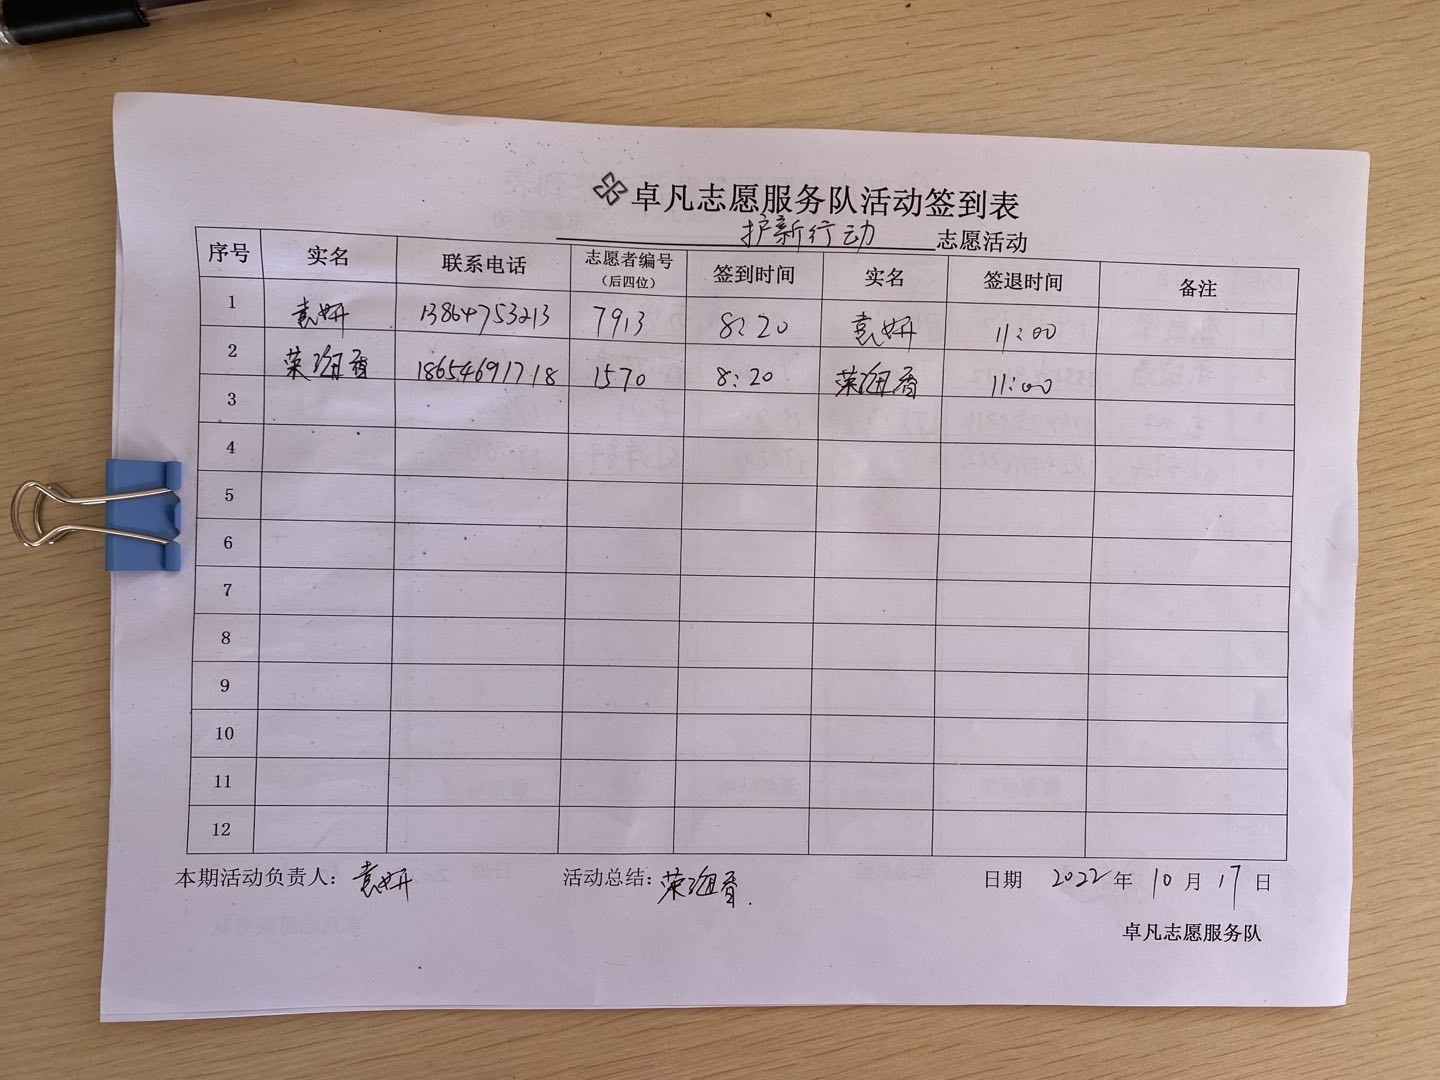 卓凡志愿服务队活动签到表
护新行动 志愿活动
序号 实名 联系电话 志愿者编号（后四位） 签到时间 实名 签退时间 备注
1 袁妍 13864753213 7913 8:20 袁妍 11:00
2 荣海香 18654691718 1570 8:20 荣海香 11:00
3
4
5
6
7
8
9
10
11
12
本期活动负责人：袁妍 活动总结：荣海香. 日期 2022年10月17日
卓凡志愿服务队